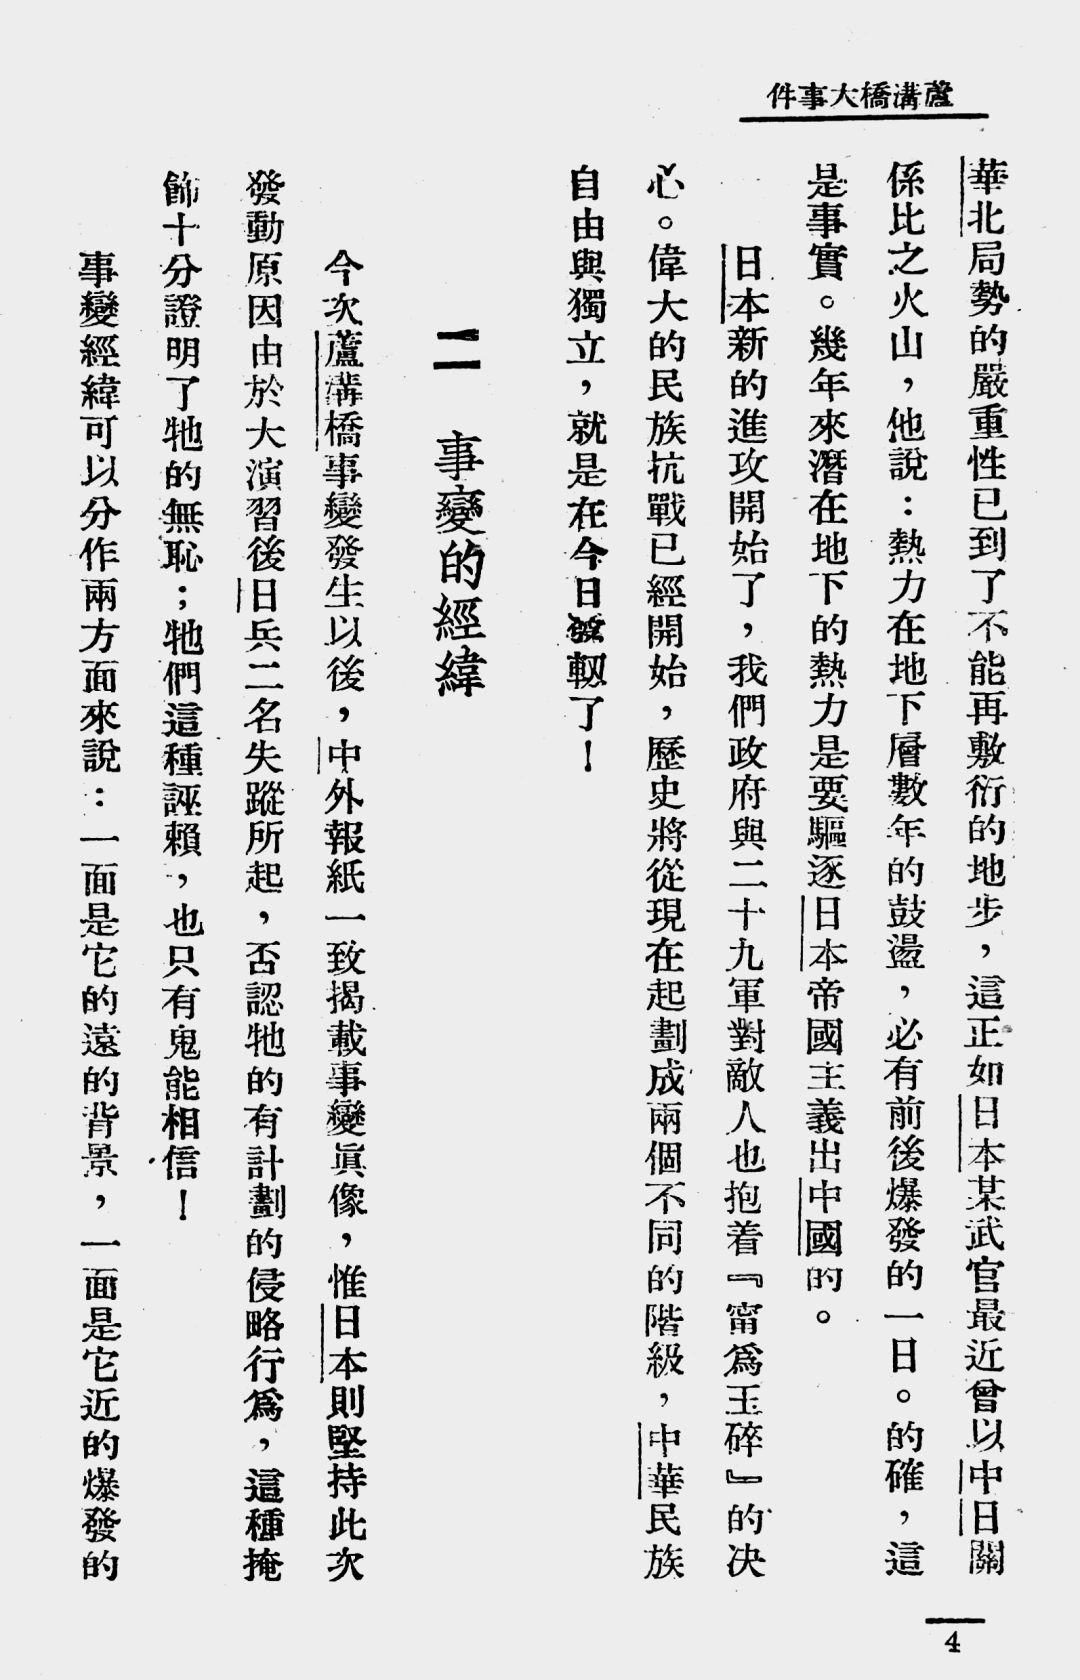 蘆溝橋大事件
華北局勢的嚴重性已到了不能再敷衍的地步，這正如日本某武官最近曾以中日關
係比之火山，他說：熱力在地下層數年的鼓盪，必有前後爆發的一日。的確，這
是事實。幾年來潛在地下的熱力是要驅逐日本帝國主義出中國的。
日本新的進攻開始了，我們政府與二十九軍對敵人也抱着『甯爲玉碎』的决
心。偉大的民族抗戰已經開始，歷史將從現在起劃成兩個不同的階級，中華民族
自由與獨立，就是在今日發軔了！
二　事變的經緯
今次蘆溝橋事變發生以後，中外報紙一致揭載事變眞像，惟日本則堅持此次
發動原因由於大演習後日兵二名失蹤所起，否認牠的有計劃的侵略行爲，這種掩
飾十分證明了牠的無恥；牠們這種誣賴，也只有鬼能相信！
事變經緯可以分作兩方面來說：一面是它的遠的背景，一面是它近的爆發的
4